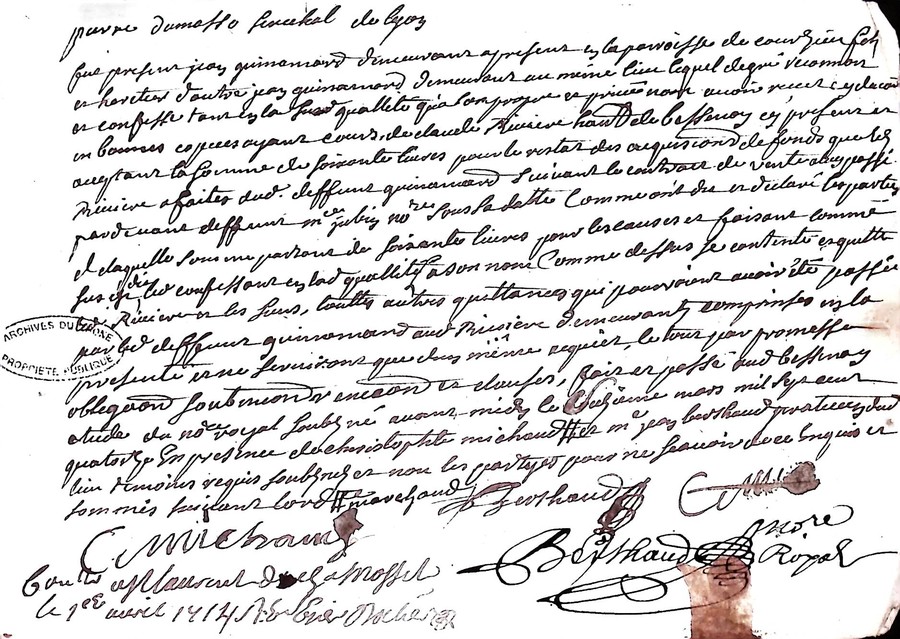 pierre dumas senechal de lyon
fut present jean guinamard demeurant a present en la parroisse de courzieu fils
et heritier d'autre jean guinamard demeurant au même lieu lequel de gré reconnoit
et confesse tant en la susd. quallité qu'a son propre et privé nom avoir receu cy devant
en bonnes especes ayant cours, de claude Riviere habitt de bessenay cy present et
acceptant la somme de soixante livres pour le restat des acquisions de fonds que led.
Riviere a faites dud. deffunt guinamard suivant le contract de vente
pardevant deffunt me jubin nore sous sa datte comme ont dit et declaré les parties
de laquelle somme partant de soixante livres pour les causes et faisant comme
sus est dit led. confessant esd. quallités a son nom comme dessus se contente en quitte
led. Riviere et les siens, touttes autres quittances qui pourroient avoir été passées
par led. deffunt guinamard aud. Riviere demeurant comprinses en la
presente et ne servirons que d'une même acquit, le tout par promesse
obligaon soubmon renconon et clauses, fait et passé aud. bessenay
etude du nore royal soubné avant midy le mars mil sept cent
quatorze En presence de christophle michaud et me jean berthaud praticien dud.
lieu temoins requis soubsnés et non les partyes pour ne sçavoir de ce enquis et
sommés suivant l'ord. marchand
Berthaud
C Michaud
Berthaud nore
Royal
Contté a St laurent de chamosset
le 1er avril 1714
ARCHIVES DU RHONE
PROPRIETE PUBLIQUE